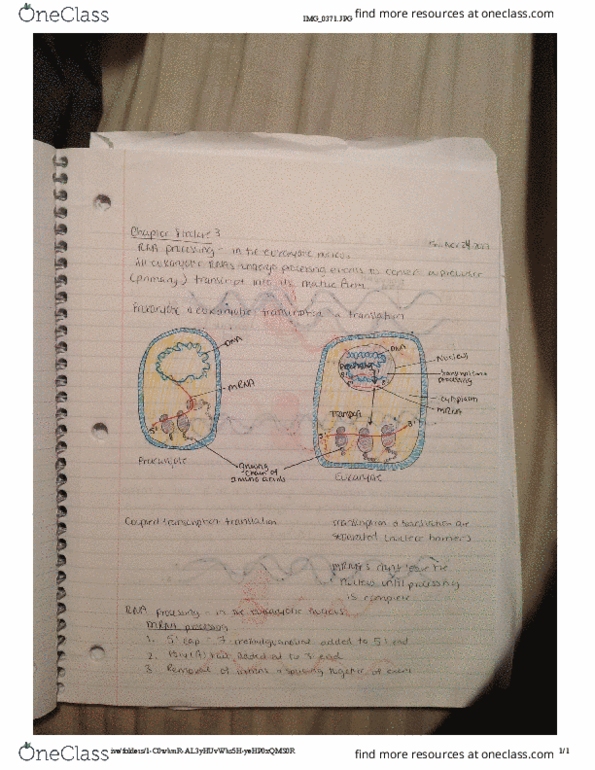 OneClass
IMG_0371.JPG
find more resources at oneclass.com
find more resources at oneclass.com
Chapter 3 lecture 3
RNA processing - in the eukaryotic nucleus
All eukaryotic RNAs undergo processing events to convert a precursor
(primary) transcript into its mature form
Prokaryotic & eukaryotic transcription & translation
DNA
mRNA
5'
Prokaryote
growing
chain of
amino acids
DNA
Nucleus
transcription +
processing
cytoplasm
mRNA
Transport
3'
5'
Eukaryote
Coupled transcription translation
transcription & translation are
separated (nuclear barriers)
mRNA's can't leave the
nucleus until processing
is complete
RNA processing - in the eukaryotic nucleus
mRNA processing
1. 5' cap - 7-methylguanosine added to 5' end
2. Poly(A) tail added on to 3' end
3. Removal of introns & splicing together of exons
OneClass
find more resources at oneclass.com
find more resources at oneclass.com
1/1